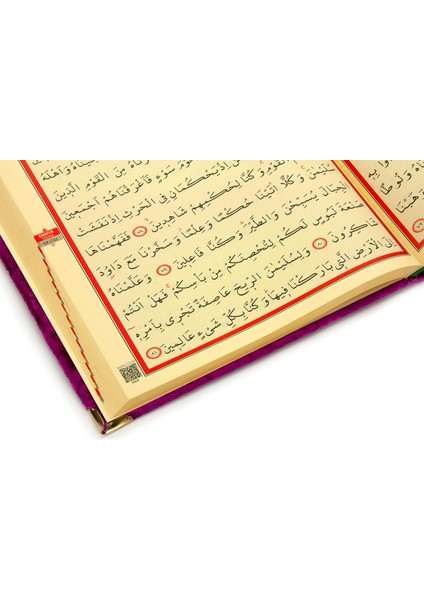 وَاَهْلَهُ
مِنَ الْقَوْمِ الَّذِينَ
سَوْءٍ فَاَغْرَقْنَاهُمْ اَجْمَعِينَ
اِذْ يَحْكُمَانِ فِي الْحَرْثِ اِذْ نَفَشَتْ
الْقَوْمِ وَكُنَّا لِحُكْمِهِمْ شَاهِدِينَ ٧٨ فَفَهَّمْنَاهَا
سُلَيْمٰنَ وَكُلًّا اٰتَيْنَا حُكْمًا وَعِلْمًا وَسَخَّرْنَا مَعَ دَاوُدَ
الْجِبَالَ يُسَبِّحْنَ وَالطَّيْرَ وَكُنَّا فَاعِلِينَ ٧٩ وَعَلَّمْنَاهُ
صَنْعَةَ لَبُوسٍ لَكُمْ لِتُحْصِنَكُمْ مِنْ بَأْسِكُمْ فَهَلْ اَنْتُمْ
شَاكِرُونَ ٨٠ وَلِسُلَيْمٰنَ الرِّيحَ عَاصِفَةً تَجْرِي بِاَمْرِهِ
اِلَى الْاَرْضِ الَّتِي بَارَكْنَا فِيهَا وَكُنَّا بِكُلِّ شَيْءٍ عَالِمِينَ ٨١